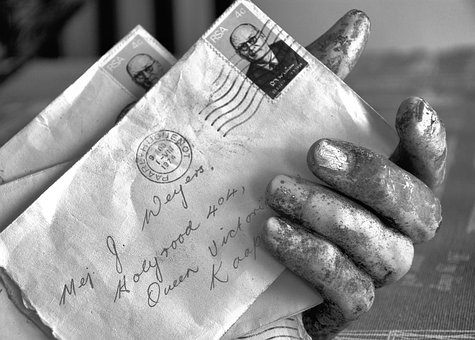 RSA 4c
RSA 4c
Mej J. Weyers.
Holyrood 404,
Queen Victori
Kaap